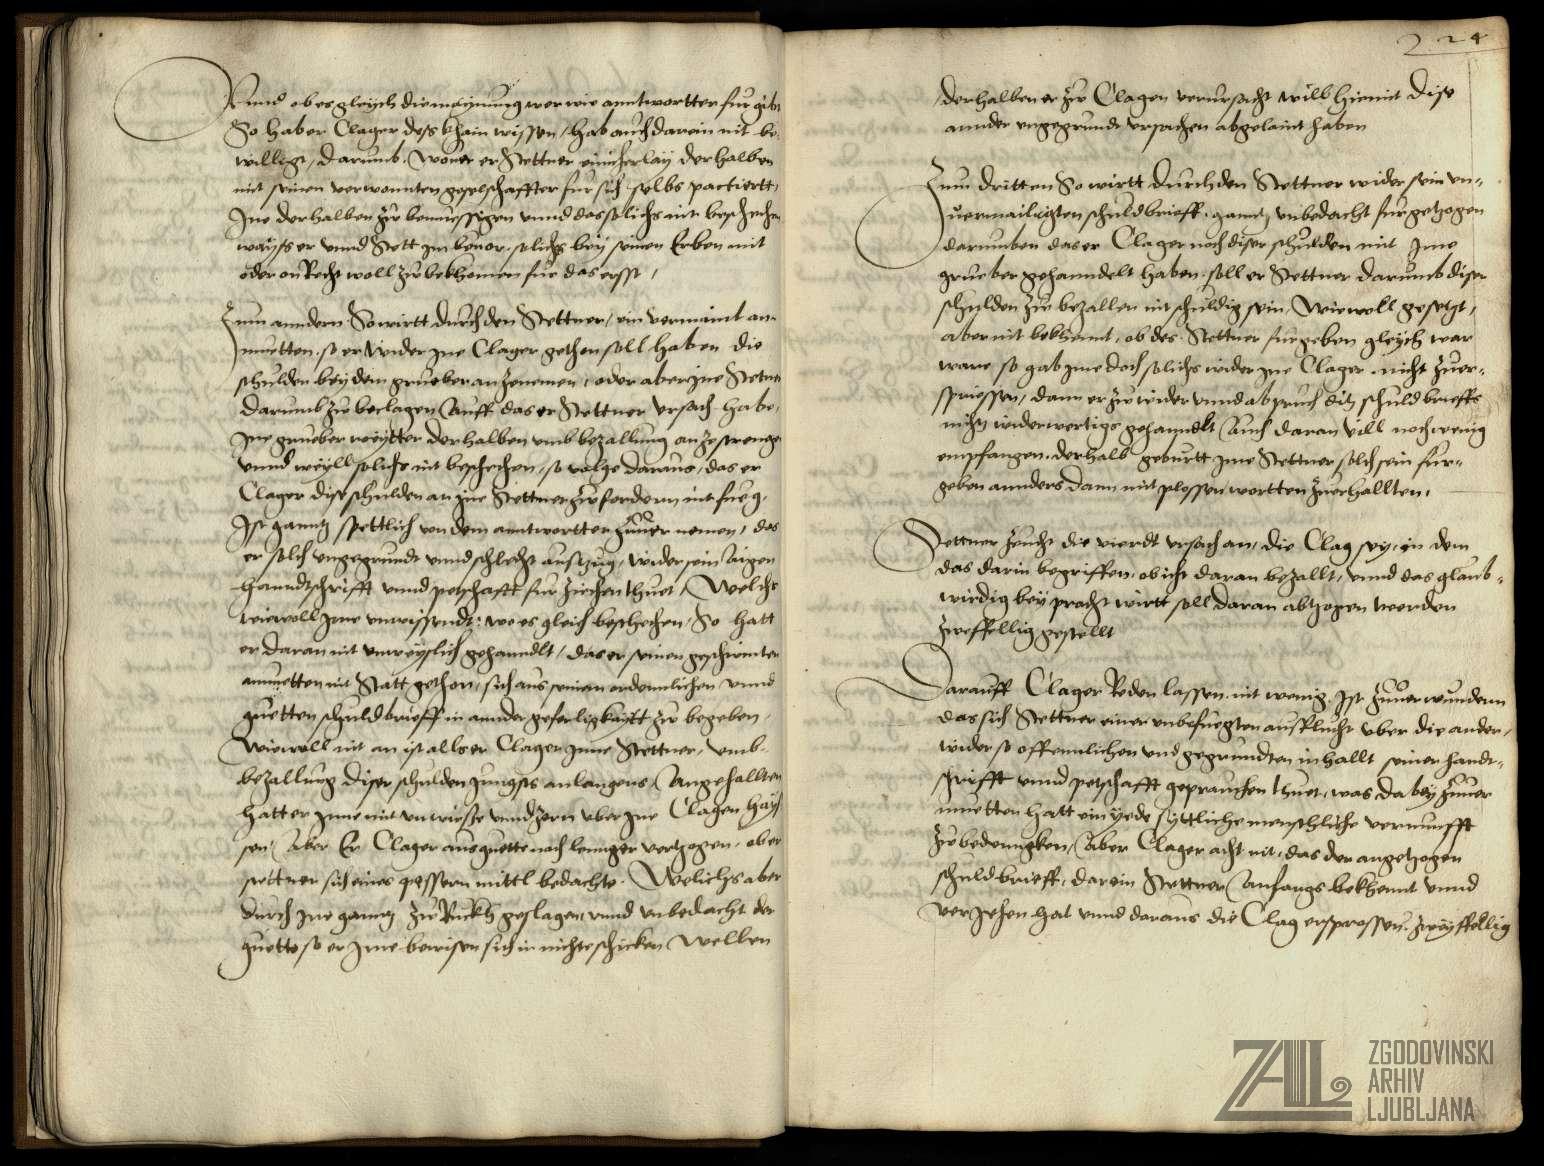 Vnnd ob es gleych die maynung wer wie anntwortter fur gibt
So hab er Clager des khain wissen, hab auch darein nit be-
willigt, darumb. Woner er Stettner ainicherlay derhalben
mit seinen verwonnten geselschaffter fur sich selbs pactiertt,
Ine derhalben zu bemuessigen vnnd das solichs nit beschechen
wayss er vnnd Stett im beuor. solichs bey seinen Erben mit
oder on Recht woll zu bekhomen fur das erst,
Zum anndern So wirtt durch den Stettner, ein vermaint an-
muetten. so er wider Ine Clager gethon soll haben die
schulden bey dem grueber anzenemen, oder aber Ine Stetner
darumb zu beclagen Auff das er Stettner vrsach habe,
Ine grueber weytter derhalben vmb bezallung anzestrengen
Vnnd weyll solichs nit beschechen, so volge daraus, das er
Clager dise schulden an Ine Stettner zu fordern nit fueg,
Ist ganntz spettlich von dem anntwortter zuuer nemen, das
er solch vngegrundt vnnd schlecht ausszug, wider sein Aigen
hanndtschrifft vnnd petschafft fur ziechen thuet, Welchs
wiewoll Ime vnwissendt: wo es gleich beschechen, So hatt
er daran nit vnweyslich gehanndlt, das er seinen geschwinten
anmuetten nit Statt gethon, sich aus seinen ordennlichen vnnd
guetten schuldbrieff in annder geferligkhaitt zu begeben,
Wiewoll nit an ist alls er Clager Inne Stettner, vmb-
bezallung diser schulden Jungsts anlangens Angehallten
hatt er Inne mit vnwirsse vnnd zorn vber Ine Clagen hays-
sen, Aber Er Clager aus guette noch lennger vertzogen, ob er
stettner sich eines pessern mittl bedachte. Welichs aber
durch Ine ganntz zu Rückh geslagen vnnd vnbedacht der
guette so er Ime bewisen sich in nichte schicken Wellen
224
derhalben er zu Clagen verursacht will hiemit dise
annder vngegrundt vrsachen abgelaint haben
Zum dritten So wirtt durch den Stettner wider sein vn-
uermailigten schuldbrieff. gantz vnbedacht furgetzogen
darumben das er Clager noch diser schulden mit Ime
grueber gehanndelt haben. soll er Stettner darumb diser
schulden zu bezallen nit schuldig sein, Wiewoll gesetzt,
aber nit bekhennt, ob des Stettner furgeben gleych war
ware so gab Ime doch solichs wider Ine Clager. nicht zuer-
spriessen, dann er zu wider vnnd abpruch ditz schuldbrieffs
nichts widerwertigs gehanndlt Auch daran vill noch wenig
empfangen. derhalb geburtt Ime Stettner solch sein fur-
geben annders dann mit plossen wortten zuerhallten,
Stettner zeucht die vierdt vrsach an, die Clag sey, in dem
das darin begriffen, ob icht daran bezallt, vnnd das glaub-
wirdig bey pracht wirtt soll daran abtzogen werden
zweffellig gestellt
Darauff Clager Reden lassen. nit wenig Ist zuuerwundern
das sich Stettner einer vnbefuegten ausflucht vber die ander,
wider so offennlichen vnd gegrundten inhallt seiner handt-
schrifft vnnd petschafft geprauchen thuet, was dabey zuuer
muetten hatt ein yede sytliche menschliche vernunfft
zu bedenngkhen, Aber Clager acht nit, das der angetzogen
schuldbrieff, darein Stettner Anfangs bekhennt vnnd
verjehen hat vnnd daraus die Clag ersprossen. zweyffellig
ZAL
ZGODOVINSKI
ARHIV
LJUBLJANA